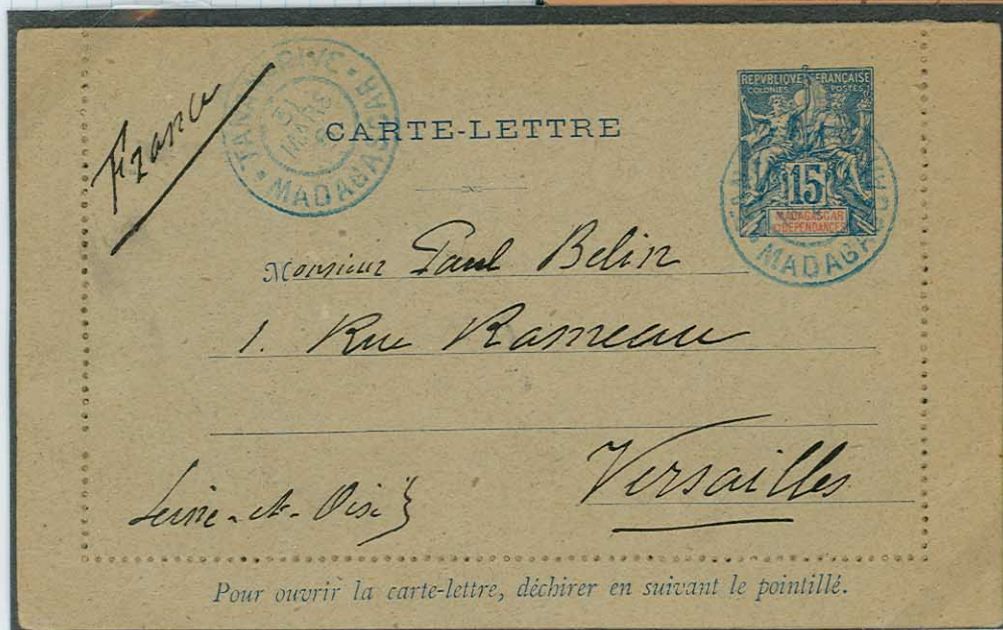 France
TANANARIVE
31 MARS
MADAGASCAR
CARTE-LETTRE
REPVBLIQVE FRANÇAISE
COLONIES POSTES
15
MADAGASCAR
ET DÉPENDANCES
MADAGA
Monsieur Paul Belin
1. Rue Rameau
Versailles
Seine-et-Oise
Pour ouvrir la carte-lettre, déchirer en suivant le pointillé.